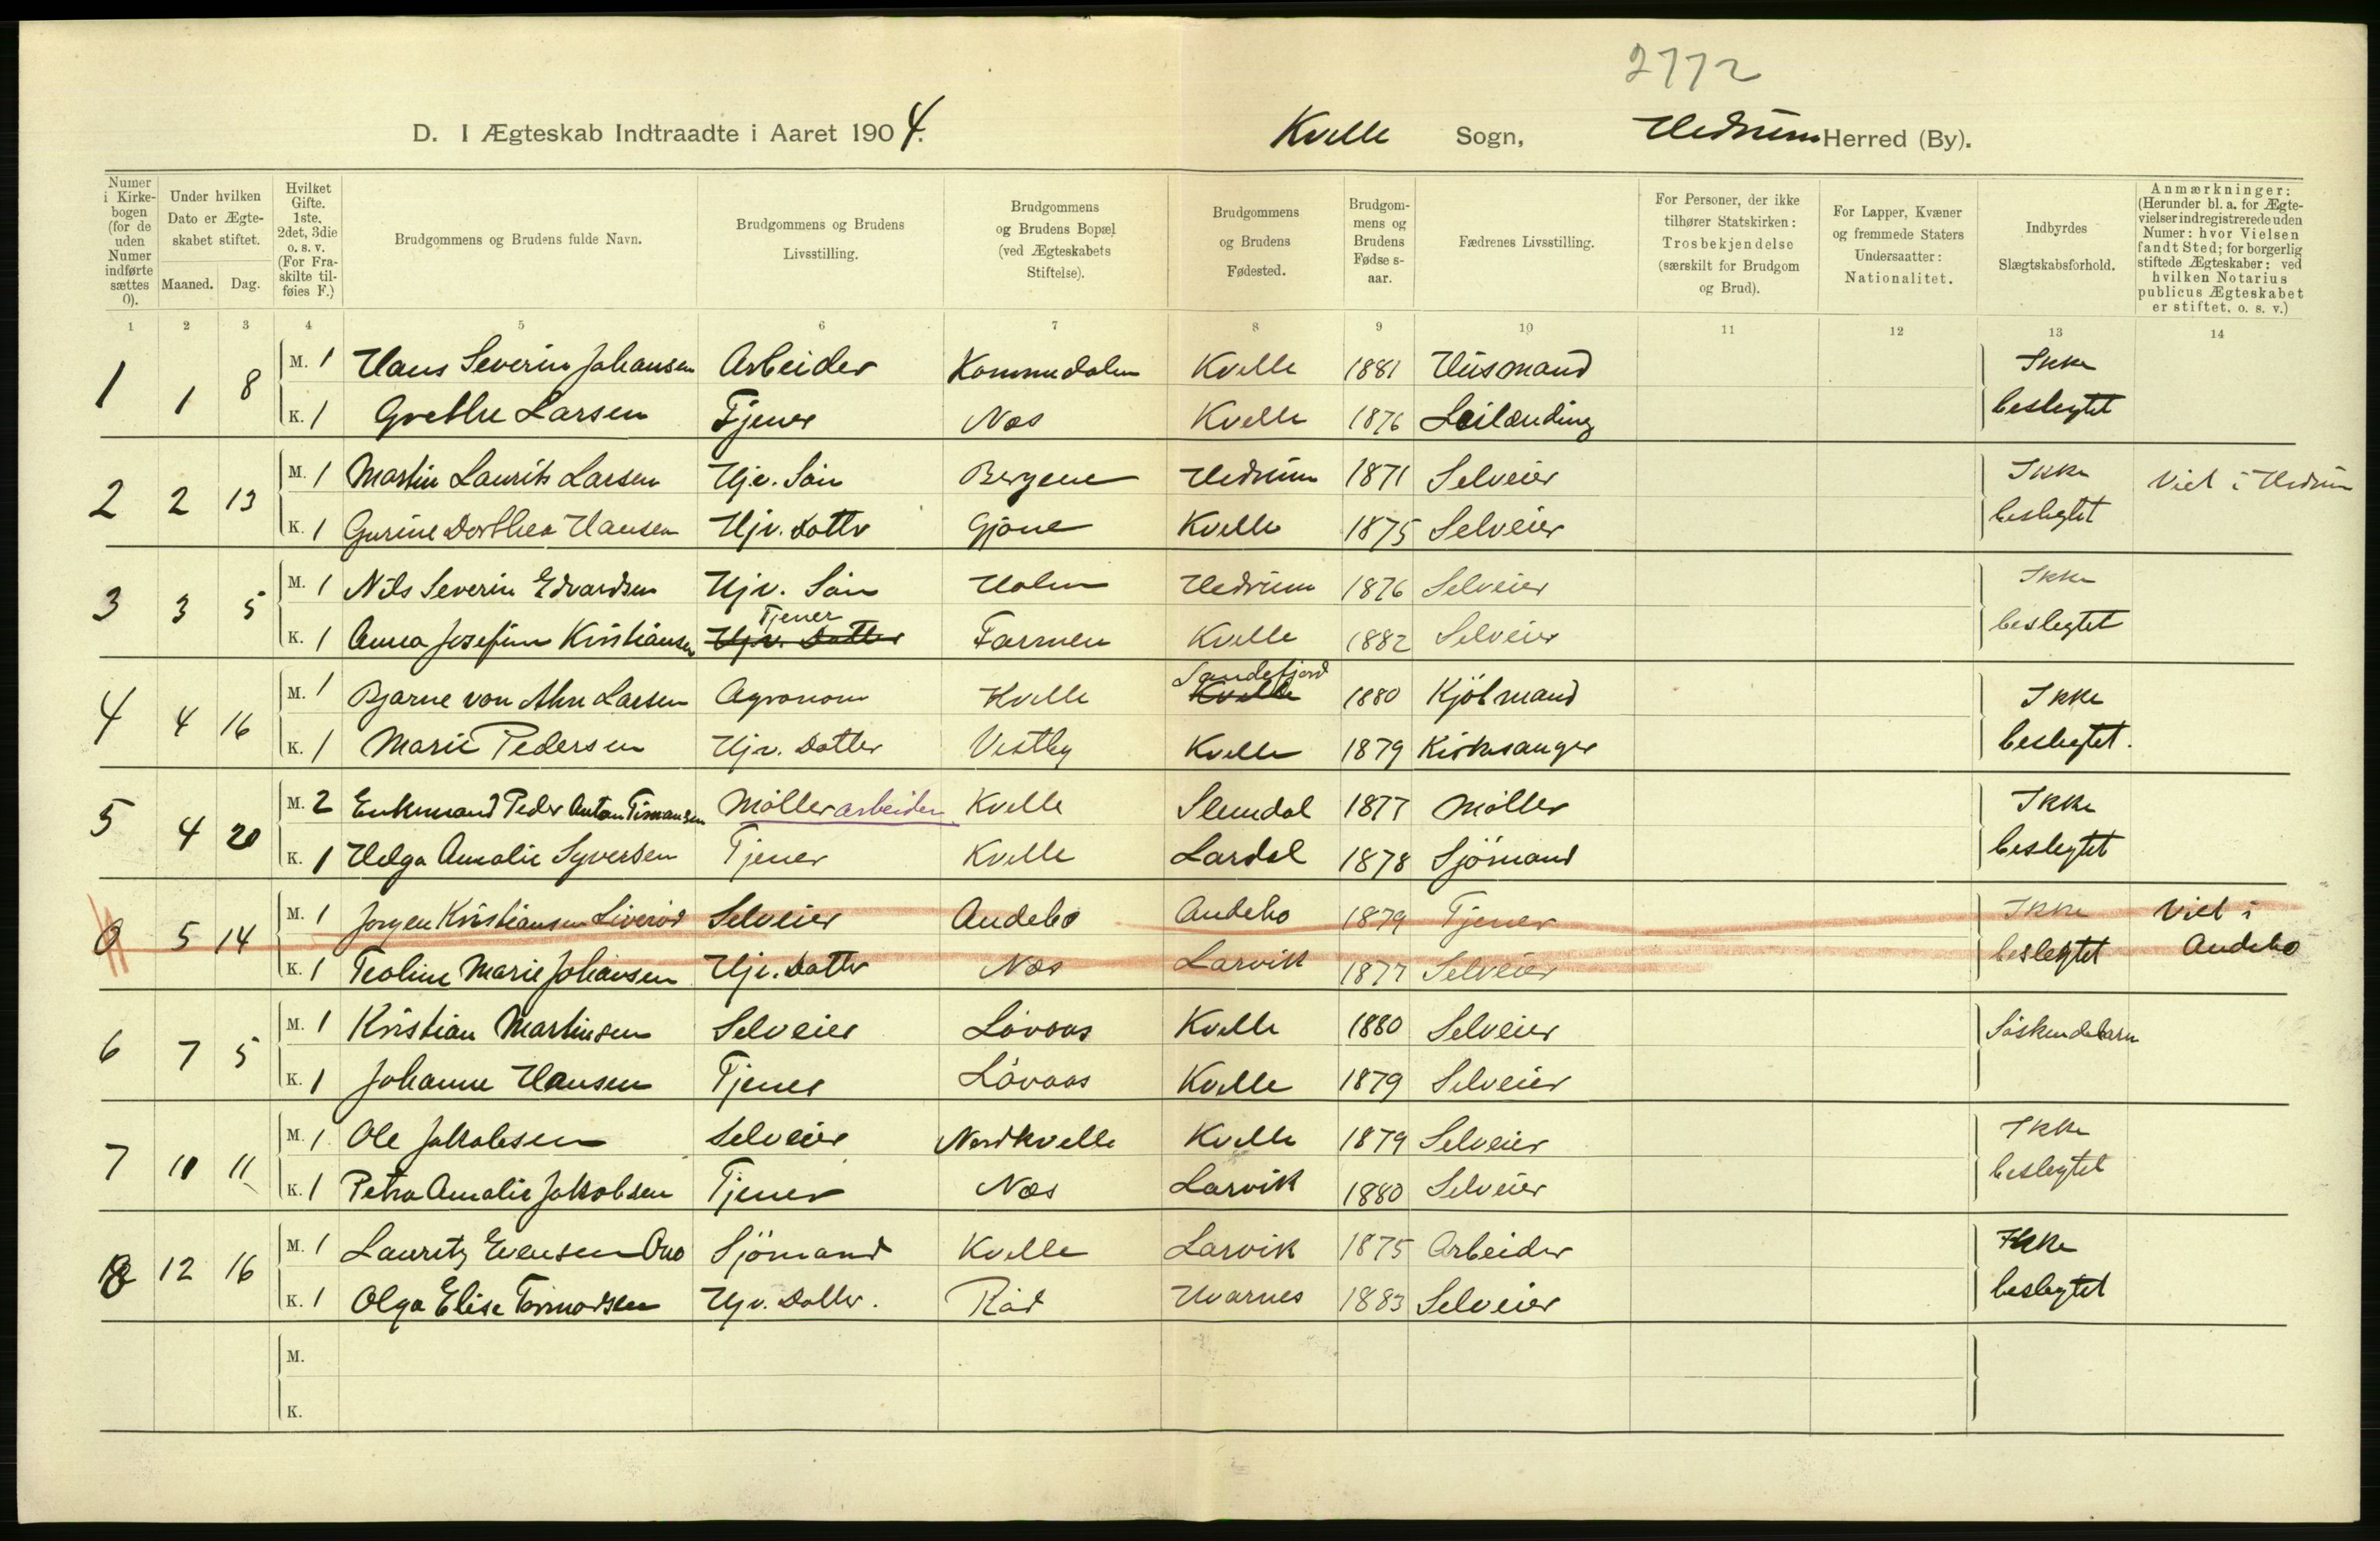 2772
D. I Ægteskab Indtraadte i Aaret 1904. Kvelle Sogn, Hedrum Herred (By).
Numer i Kirke-bogen (for de uden Numer indførte sættes 0).
Under hvilken Dato er Ægte-skabet stiftet.
Maaned. Dag.
Hvilket Gifte. 1ste, 2det, 3die o. s. v. (For Fra-skilte til-føies F.)
Brudgommens og Brudens fulde Navn.
Brudgommens og Brudens Livsstilling.
Brudgommens og Brudens Bopæl (ved Ægteskabets Stiftelse).
Brudgommens og Brudens Fødested.
Brudgom-mens og Brudens Fødse s-aar.
Fædrenes Livsstilling.
For Personer, der ikke tilhører Statskirken: Trosbekjendelse (særskilt for Brudgom og Brud).
For Lapper, Kvæner og fremmede Staters Undersaatter: Nationalitet.
Indbyrdes Slægtskabsforhold.
Anmærkninger: (Herunder bl. a. for Ægte-vielser indregistrerede uden Numer: hvor Vielsen fandt Sted; for borgerlig stiftede Ægteskaber: ved hvilken Notarius publicus Ægteskabet er stiftet, o. s. v.)
1 2 3 4 5 6 7 8 9 10 11 12 13 14
1 1 8 M. 1 Hans Severin Johansen Arbeider Kommedalen Kvelle 1881 Husmand Ikke
K. 1 Grethe Larsen Tjener Næs Kvelle 1876 Leilænding beslegtet
2 2 13 M. 1 Martin Laurits Larsen Hjv. Søn Bergene Hedrum 1871 Selveier Ikke Viet i Hedrum
K. 1 Gurine Dorthea Hansen Hjv. Datter Gjøne Kvelle 1875 Selveier beslegtet
3 3 5 M. 1 Nils Severin Edvardsen Hjv. Søn Holm Hedrum 1876 Selveier Ikke
Tjener
K. 1 Anna Josefine Kristiansen Hjv. Datter Farmen Kvelle 1882 Selveier beslegtet
Sandefjord
4 4 16 M. 1 Bjarne von Ahn Larsen Agronom Kvelle Kvelle 1880 Kjöbmand Ikke
K. 1 Marie Pedersen Hjv. Datter Vestby Kvelle 1879 Kirkesanger beslegtet.
5 4 20 M. 2 Enkemand Peder Anton Timansen Möllerarbeider Kvelle Slemdal 1877 Möller Ikke
K. 1 Helga Amalie Syversen Tjener Kvelle Lardal 1878 Sjömand beslegtet
0 5 14 M. 1 Jorgen Kristiansen Liveröd Selveier Andebo Andebo 1879 Tjener Ikke Viet i
K. 1 Teoline Marie Johansen Hjv. Datter Næs Larvik 1877 Selveier beslegtet Andebo
6 7 5 M. 1 Kristian Martinsen Selveier Lövaas Kvelle 1880 Selveier Söskendebarn
K. 1 Johanne Hansen Tjener Lövaas Kvelle 1879 Selveier
7 10 11 M. 1 Ole Jakobsen Selveier Nordkvelle Kvelle 1879 Selveier Ikke
K. 1 Petra Amalie Jakobsen Tjener Næs Larvik 1880 Selveier beslegtet
8 12 16 M. 1 Lauritz Evensen Sjömand Kvelle Larvik 1875 Arbeider Ikke
K. 1 Olga Elise Tormodsen Hjv. Datter. Röd Hvarnes 1883 Selveier beslegtet
M.
K.